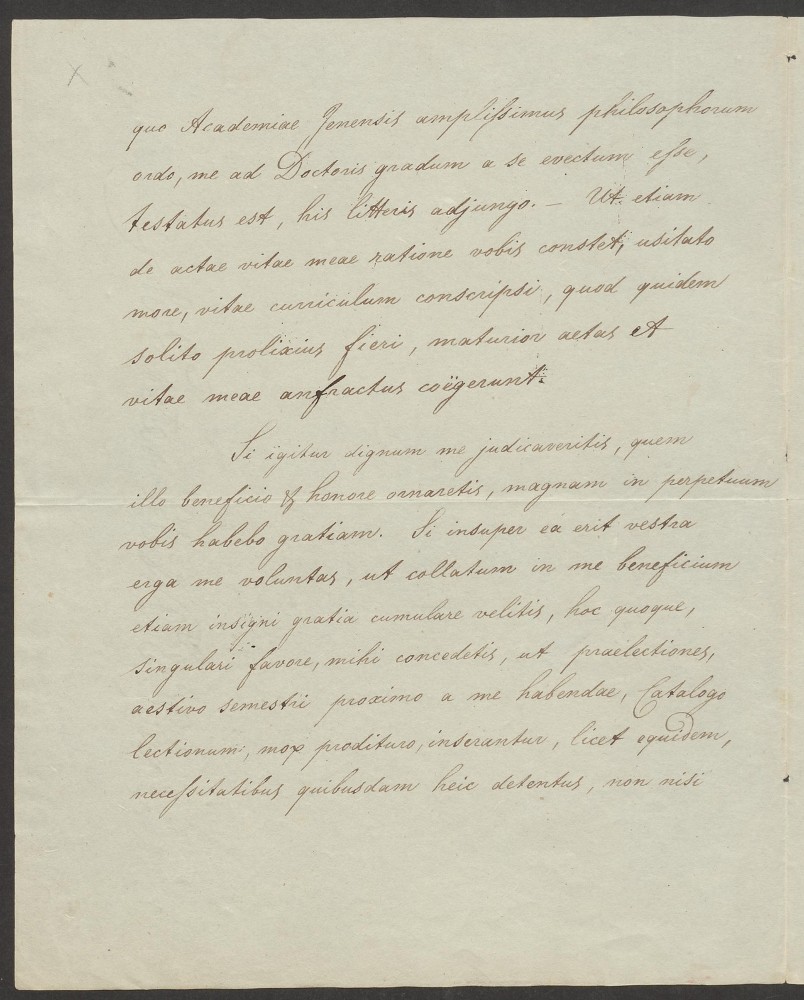 quo Academiae Jenensis amplissimus philosophorum
ordo, me ad Doctoris gradum a se evectum esse,
testatus est, his litteris adjungo. – Ut etiam
de actae vitae meae ratione vobis constet, usitato
more, vitae curriculum conscripsi, quod quidem
solito prolixius fieri, maturior aetas et
vitae meae anfractus coëgerunt.
Si igitur dignum me judicaveritis, quem
illo beneficio & honore ornaretis, magnam in perpetuum
vobis habebo gratiam. Si insuper ea erit vestra
erga me voluntas, ut collatum in me beneficium
etiam insigni gratia cumulare velitis, hoc quoque,
singulari favore, mihi concedetis, ut praelectiones,
aestivo semestri proximo a me habendae, Catalogo
lectionum, mox prodituro, inserantur, licet equidem,
necessitatibus quibusdam heic detentus, non nisi